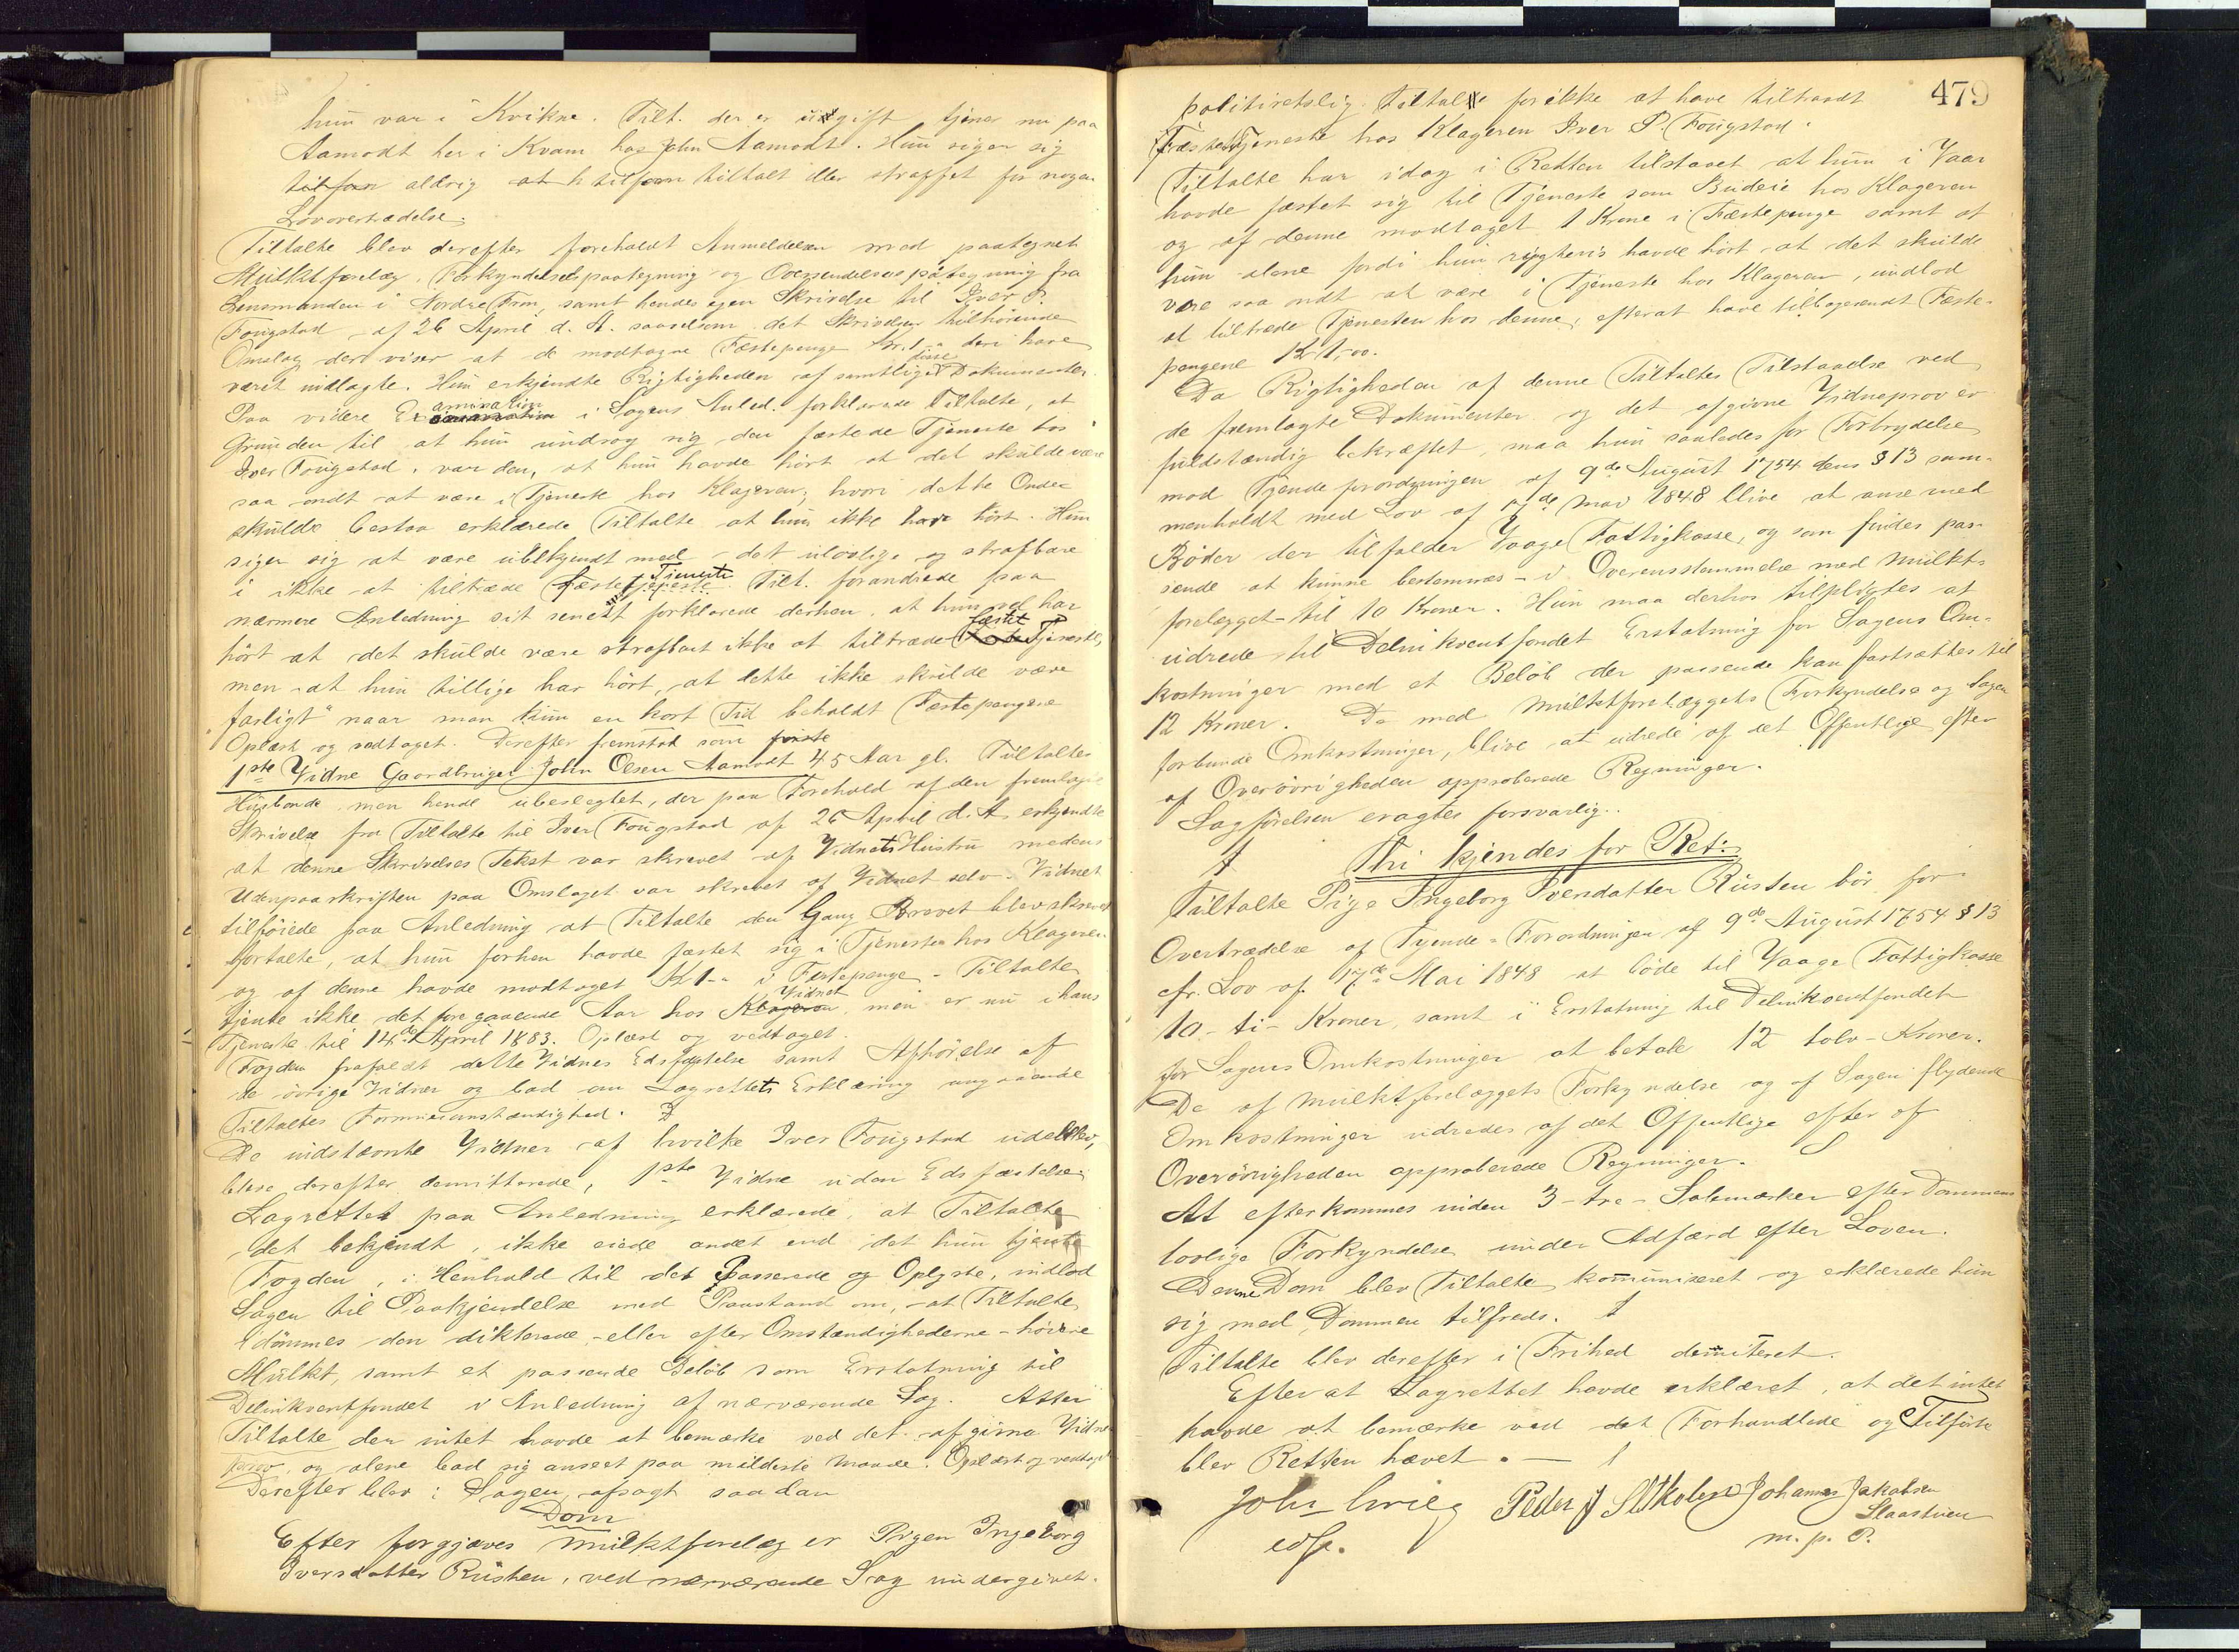 hun var i Kvikne. Tilt. der er ugift tjener nu paa
Aamodt her i Kvam hos John Aamodt. Hun siger sig
tilforn aldrig at tilforn tiltalt eller straffet for nogen
Lovovertrædelse.
Tiltalte blev derefter foreholdt Anmeldelsen med paategnet
Mulktforelæg, Forkyndelsespaategning og Oversendelsespåtegning fra
Lensmanden i Nordre Fron, samt hendes egen Skrivelse til Iver P.
Fougstad af 26 April d. A. saavelsom det Skrivelsen tilhörende
Omslag der viser at de modtagne Fæstepenge Kr. 1 - deri have
været indlagte. Hun erkjendte Rigtigheden af samtlige disse Dokumenter.
Paa videre Examination i Sagens Anled. forklarede Tiltalte, at
Grunden til at hun undrog sig den fæstede Tjeneste hos
Iver Fougstad, var den, at hun havde hört at det skulde være
saa ondt at være i Tjeneste hos Klageren; hvori dette Onde
skulde bestaa erklærede Tiltalte at hun ikke have hört. Hun
siger sig at være ubekjendt med det ulovlige og strafbare
i ikke at tiltræde fæstet Tjeneste. Tilt. forandrede paa
nærmere Anledning sit senest forklarede derhen, at hun vel har
hört at det skulde være strafbart ikke at tiltræde fæstet Tjeneste,
men at hun tillige har hört, at dette ikke skulde være
"farligt" naar man kun en kort Tid beholdt Fæstepengene
Oplæst og vedtaget. Derefter fremstod som første
1ste Vidne Gaardbruger John Olsen Aamodt 45 Aar gl. Tiltaltes
Husbonde men hende ubeslægtet, der paa Forehold af den fremlagte
Skrivelse fra Tiltalte til Iver Fougstad af 26 April d. A. erkjendte
at denne Skrivelses Tekst var skrevet af Vidnets Hustru medens
Udenpaaskriften paa Omslaget var skrevet af Vidnet selv. Vidnet
tilföiede paa Anledning at Tiltalte den Gang Brevet blev skrevet
fortalte, at hun forhen havde fæstet sig i Tjenesten hos Klageren
og af denne havde modtaget Kr 1 - i Fæstepenge - Tiltalte
tjente ikke det foregaaende Aar hos Klageren Vidnet, men er nu i hans
Tjeneste til 14de April 1883. Oplæst og vedtaget.
Fogden frafaldt dette Vidnes Edsfæstelse samt Afhörelse af
de övrige Vidner og bad om Lagrettets Erklæring angaaende
Tiltaltes Formuesomstændighed.
De indstævnte Vidner af hvilke Iver Fougstad udeblev,
bleve derefter demitterede, 1ste Vidne uden Edsfæstelse.
Lagrettet paa Anledning erklærede, at Tiltalte
det bekjendt, ikke eiede andet end det hun tjente
Fogden, i Henhold til det Passerede og Oplyste, indlod
Sagen til Paakjendelse med Paastand om, at Tiltalte
idömmes den dikterede - eller efter Omstændighederne - höiere
Mulkt, samt et passende Belöb som Erstatning til
Delinkventfondet i Anledning af nærværende Sag. Atter
Tiltalte der intet havde at bemærke ved det afgivne Vidne
prov, og alene bad sig anseet paa mildeste Maade. Oplæst og vedtaget
Derefter blev i Sagen afsagt saadan
Dom
Efter forgjæves Mulktforelæg er Pigen Ingeborg
Iversdatter Rusten, ved nærværende Sag undergivet
479
politiretslig Tiltale for ikke at have tiltraadt
Fæstet Tjeneste hos Klageren Iver P. Fougstad.
Tiltalte har idag i Retten tilstaaet at hun i Vaar
havde fæstet sig til Tjeneste som Budeie hos Klageren
og af denne modtaget 1 Krone i Fæstepenge samt at
hun alene fordi hun rygtevis havde hört at det skulde
være saa ondt at være i Tjeneste hos Klageren, undlod
at tiltræde Tjenesten hos denne, efterat have tilbagesendt Fæste-
pengene Kr 1,00.
Da Rigtigheden af denne Tiltaltes Tilstaaelse ved
de fremlagte Dokumenter og det afgivne Vidneprov er
fuldstændig bekræftet, maa hun saaledes for Forbrydelse
mod Tyendeforordningen af 9de August 1754 dens § 13 sam-
menholdt med Lov af 17de Mai 1848 blive at anse med
Böder der tilfalder Vaage Fattigkasse, og som findes pas-
sende at kunne bestemmes - i Overensstemmelse med Mulkt-
forelægget - til 10 Kroner. Hun maa derhos tilpligtes at
udrede til Delinkventfondet Erstatning for Sagens Om-
kostninger med et Belöb der passende kan fastsættes til
12 Kroner. De med Mulktforelæggets Forkyndelse og Sagen
forbundne Omkostninger, blive at udrede af det Offentlige efter
af Overövrigheden approberede Regninger.
Sagförelsen eragtes forsvarlig.
Thi kjendes for Ret:
Tiltalte Pige Ingeborg Iversdatter Rusten bör for
Overtrædelse af Tyende-Forordningen af 9de August 1754 § 13
cfr. Lov af 17de Mai 1848 at böde til Vaage Fattigkasse
10 - ti - Kroner, samt i Erstatning til Delinkventfondet
for Sagens Omkostninger at betale 12 tolv - Kroner.
De af Mulktforelæggets Forkyndelse og af Sagen flydende
Omkostninger udredes af det Offentlige efter af
Overövrigheden approberede Regninger.
At efterkommes inden 3 - tre - Solemærker efter Dommens
lovlige Forkyndelse under Adfærd efter Loven.
Denne Dom blev Tiltalte kommuniseret og erklærede hun
sig med Dommen tilfreds.
Tiltalte blev derefter i Frihed demiteret.
Efter at Lagrettet havde erklæret, at det intet
havde at bemærke ved det Forhandlede og Tilförte
blev Retten hævet. -
John Grieg Peder Johannes Jakobsen
Slaastuen
m. p. P.